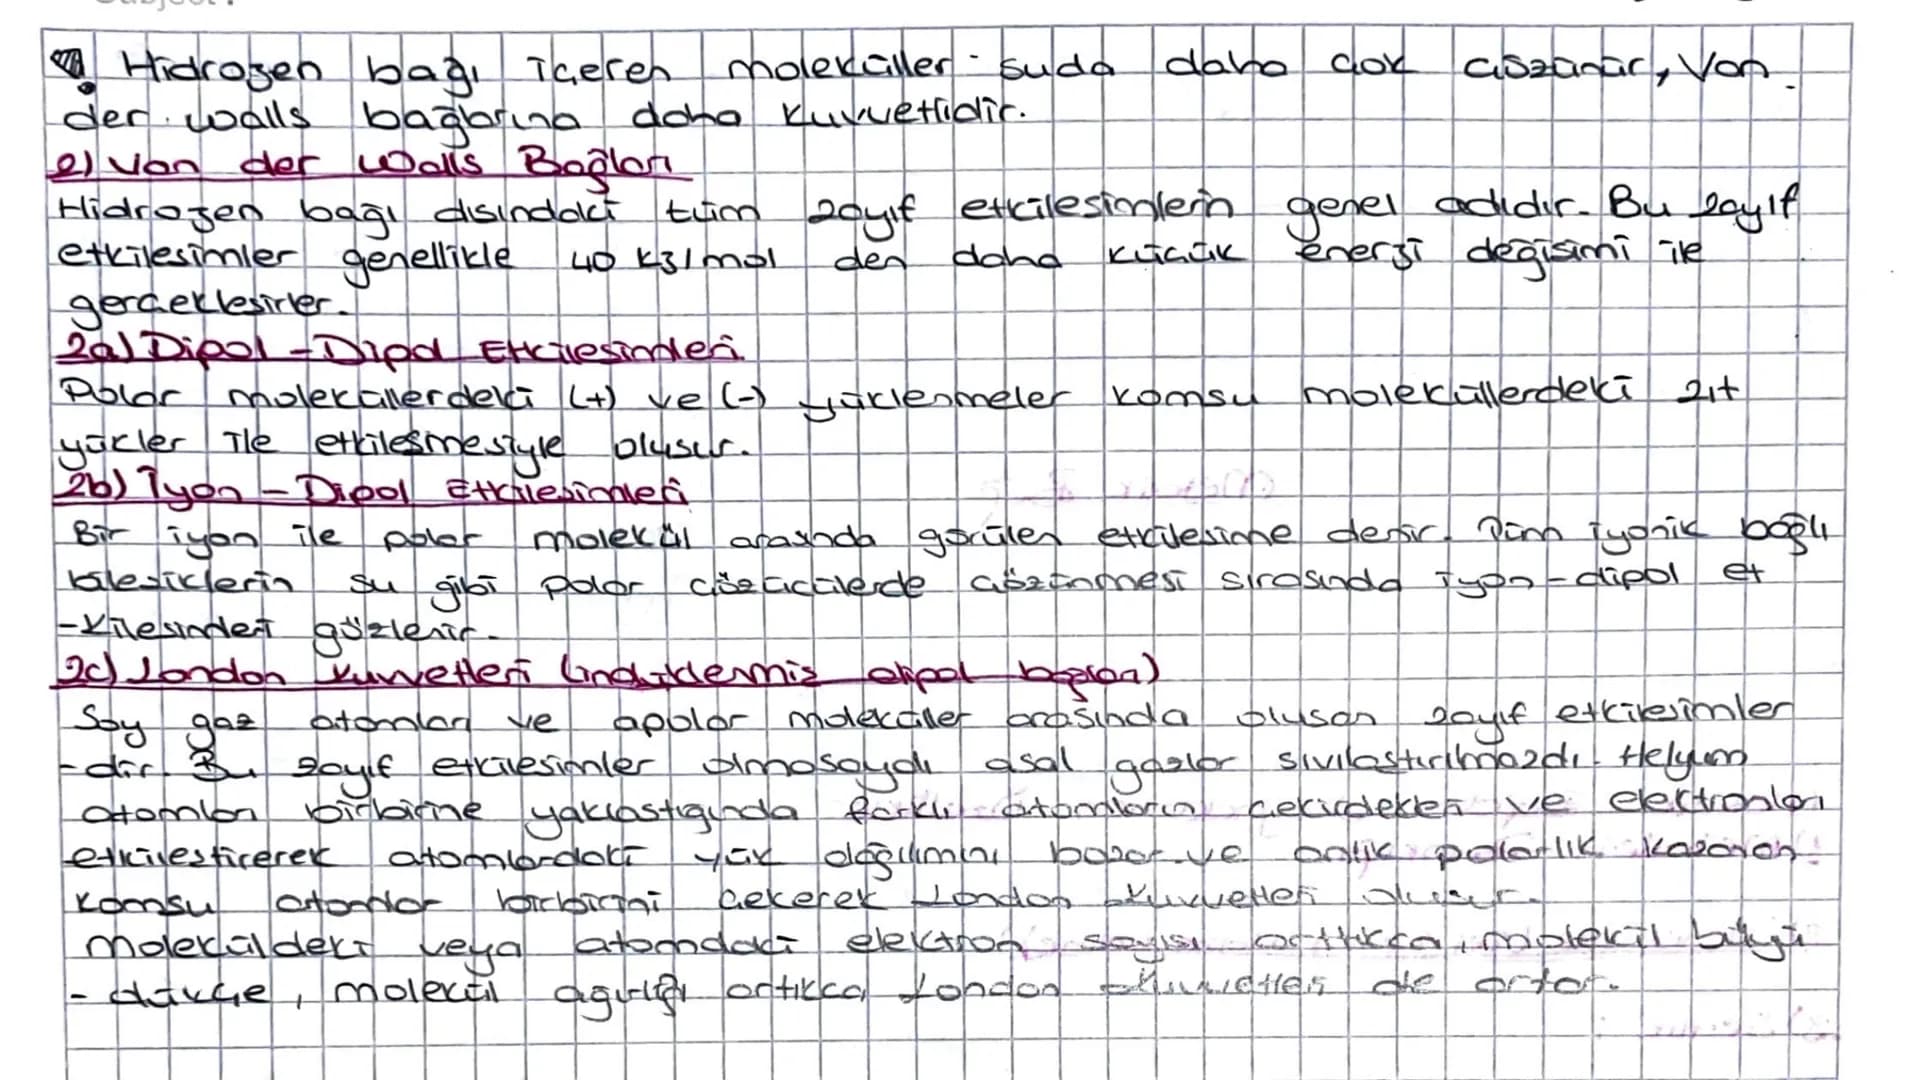 Hidrojen bağı içeren moleküller suda daha çok çözünür, Van
der walls bağlarına daha kuvvetlidir.
2) Van der Walls Bağları
Hidrojen bağı dışındaki tüm zayıf etkileşimlerin genel adıdır. Bu zayıf
etkileşimler genellikle 40 kj/mol den daha küçük enerji değişimi ile
gerçekleşirler.
2a) Dipol - Dipol Etkileşimleri
Polar moleküllerdeki (+) ve (-) yüklenmeler komşu moleküllerdeki zıt
yükler ile etkileşmesiyle oluşur.
2b) İyon - Dipol Etkileşimleri
Bir iyon ile polar molekül arasında görülen etkileşime denir. Tüm iyonik bağlı
bileşiklerin su gibi polar çözücülerde çözünmesi sırasında iyon-dipol et
-kileşimleri gözlenir.
2c) London Kuvvetleri (indüklenmiş dipol bağları)
Soy gaz atomları ve apolar moleküller arasında oluşan zayıf etkileşimler
-dir. Bu zayıf etkileşimler olmasaydı asal gazlar sıvılaştırılmazdı. Helyum
atomları birbirine yaklaştığında farklı atomların çekirdekleri ve elektronları
etkileştirerek atomlardaki yük dağılımını bozar ve anlık polarlık kazanan
komşu atomlar birbirini çekerek London kuvvetleri oluşur.
moleküldeki veya atomdaki elektron sayısı arttıkca, molekül büyü
- dükçe, molekül ağırlığı artıkca London kuvvetleri de artar.